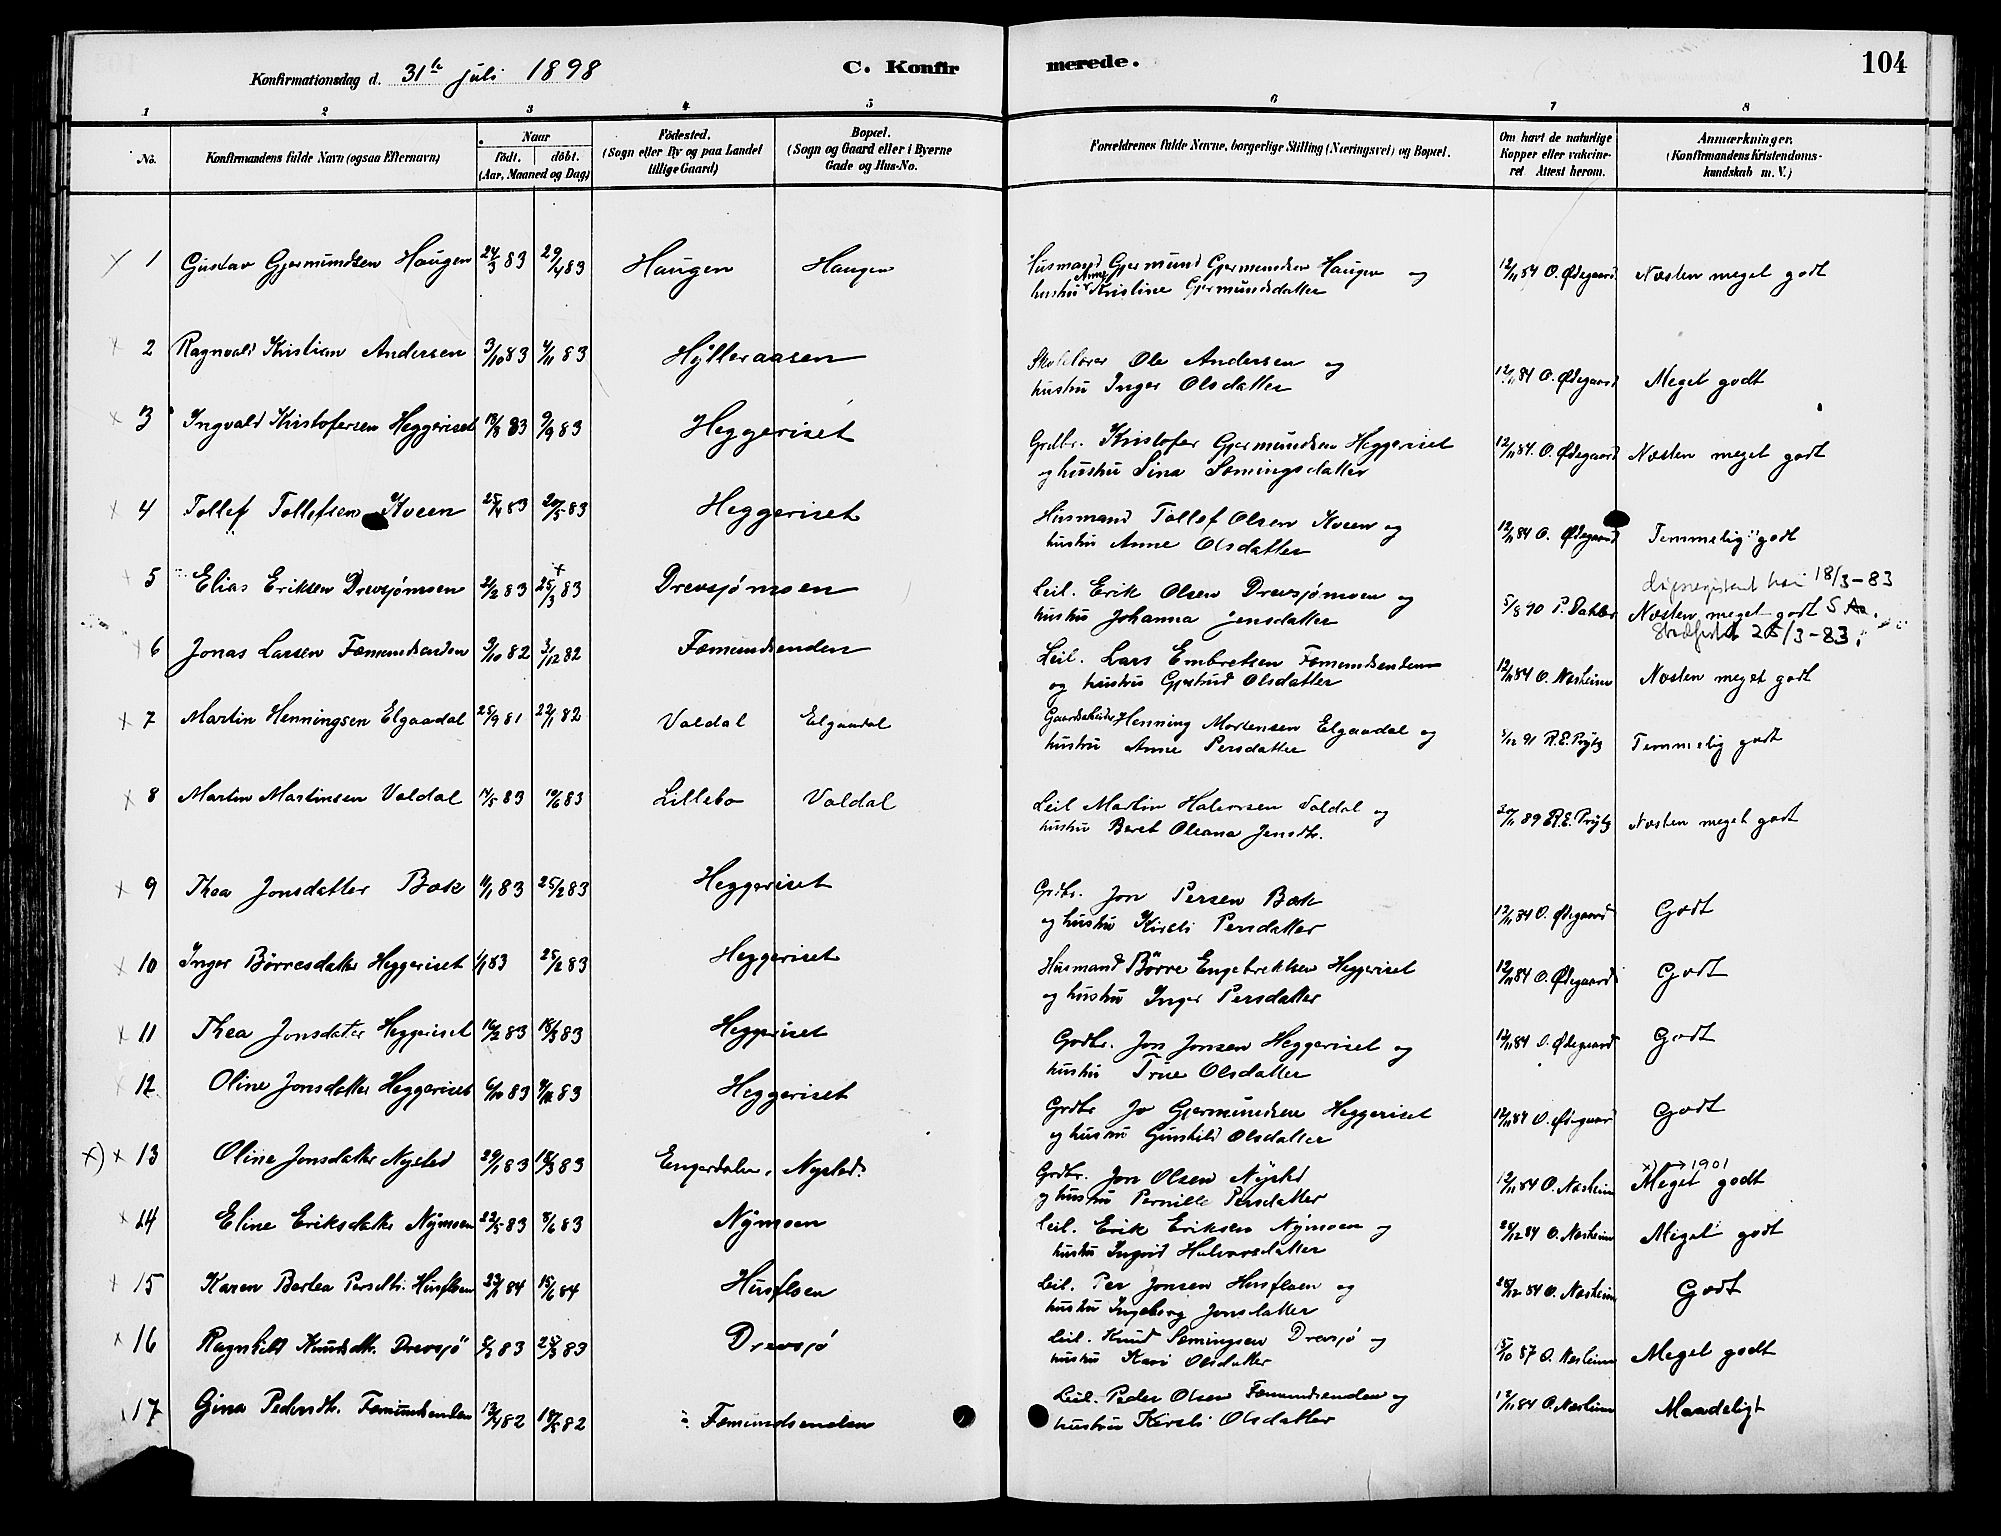 Konfirmationsdag d. 31te juli 1898 C. Konfirmerede. 104
1 2 3 4 5 6 7 8
No. Konfirmandens fulde Navn (ogsaa Efternavn) Naar født. døbt. (Aar, Maaned og Dag) Fødested. (Sogn eller By og paa Landet tillige Gaard) Bopæl. (Sogn og Gaard eller i Byerne Gade og Hus-No. Forældrenes fulde Navne, borgerlige Stilling (Næringsvei) og Bopæl. Om havt de naturlige Kopper eller vakcineret Attest herom. Anmærkninger. (Konfirmandens Kristendomskundskab m. V.)
1 Gustav Gjermundsen Haugen 24/3 83 29/4 83 Haugen Haugen Husmand Gjermund Gjermundsen Haugen og 12/11 84 O. Ødegaard Næsten meget godt
hustru Anne Kristine Gjermundsdatter
2 Ragnvald Kristian Andersen 3/10 83 4/11 83 Hylleraasen Skolelærer Ole Andersen og 12/11 84 O. Ødegaard Meget godt
hustru Inger Olsdatter
3 Ingvald Kristofersen Heggeriset 18/8 83 9/9 83 Heggeriset Grdbr. Kristofer Gjermundsen Heggeriset 12/11 84. O. Ødegaard Næsten meget godt
og hustru Sina Sæmingsdatter
4 Tollef Tollefsen Kveen 25/4 83 20/5 83 Heggeriset Husmand Tollef Olsen Kveen og 12/11 84 O. Ødegaard Temmelig godt
hustru Anne Olsdatter
5 Elias Eriksen Drevsjømoen 2/2 83 25/3 83 Drevsjømoen Leil. Erik Olsen Drevsjømoen og 5/8 90 P. Dahler Næsten meget godt
18/3-83
hustru Johanna Jensdatter
25/3-83
6 Jonas Larsen Fæmundsenden 9/10 82 3/12 82 Fæmundsenden Leil. Lars Embretsen Fæmundsenden 12/11 84 O. Næsheim Næsten meget godt
og hustru Gjertrud Olsdatter
7 Martin Henningsen Elgaadal 25/9 81 22/1 82 Valdal Elgaadal Henning Mortensen Elgaadal og 1/12 91 R. E. Prytz Temmelig godt
hustru Anne Persdatter
8 Martin Martinsen Valdal 14/5 83 10/6 83 Lillebo Valdal Leil Martin Halvorsen Valdal og 20/11 89 R. E. Prytz Næsten meget godt
hustru Beret Oleana Jensdtr.
9 Thea Jonsdatter Bæk 11/1 83 25/2 83 Heggeriset Grdbr. Jon Persen Bæk 12/11 84 O. Ødegaard Godt
og hustru Kirsti Persdatter
10 Inger Børresdatter Heggeriset 1/1 83 25/2 83 Heggeriset Husmand Børre Engebrektsen Heggeriset 12/11 84 O. Ødegaard Godt
og hustru Inger Persdatter
11 Thea Jonsdatter Heggeriset 16/2 83 18/3 83 Heggeriset Grdbr. Jon Jonsen Heggeriset og 12/11 84 O. Ødegaard Godt
hustru Trine Olsdatter
12 Oline Jonsdatter Heggeriset 6/10 83 4/11 83 Heggeriset Grdbr Jo Gjermundsen Heggeriset 12/11 84 O. Ødegaard Godt
og hustru Gunhild Olsdatter
x) 13 Oline Jonsdatter Nysted 29/1 83 18/3 83 Engerdalen, Nysted. Grdbr. Jon Olsen Nysted 12/11 84 O. Næsheim x) → 1901 Meget godt
og hustru Pernille Persdatter
14 Eline Eriksdatter Nymoen 22/5 83 8/6 83 Nymoen Leil. Erik Eriksen Nymoen og 28/12 84 O. Næsheim Meget godt
hustru Ingrid Halvorsdatter
15 Karen Bertea Persdtr. Husfloen 23/1 84 15/6 84 Husfloen Leil. Per Jonsen Husfloen og 28/12 84 O. Næsheim Godt
hustru Ingeborg Jonsdatter
16 Ragnhild Knudsdtr. Drevsjø 5/3 83 25/3 83 Drevsjø Leil. Knud Sæmingsen Drevsjø og 15/10 87 O. Næsheim Meget godt
hustru Kari Olsdatter
17 Gina Pedersdtr. Fæmundsenden 13/4 82 18/5 82 Fæmundsenden Leil. Peder Olsen Fæmundsenden og 12/11 84 O. Næsheim Maadeligt
hustru Kirsti Olsdatter